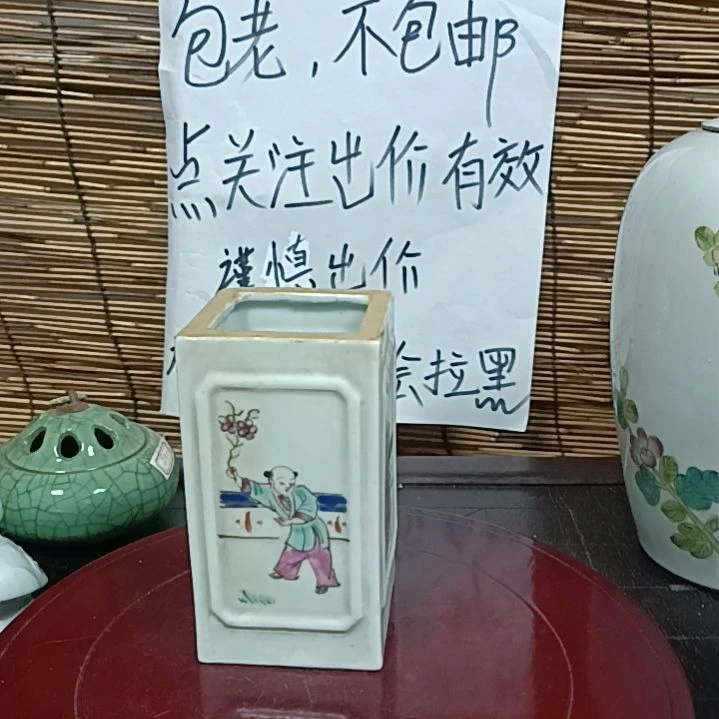 包老，不包邮
点关注出价有效
谨慎出价
会拉黑